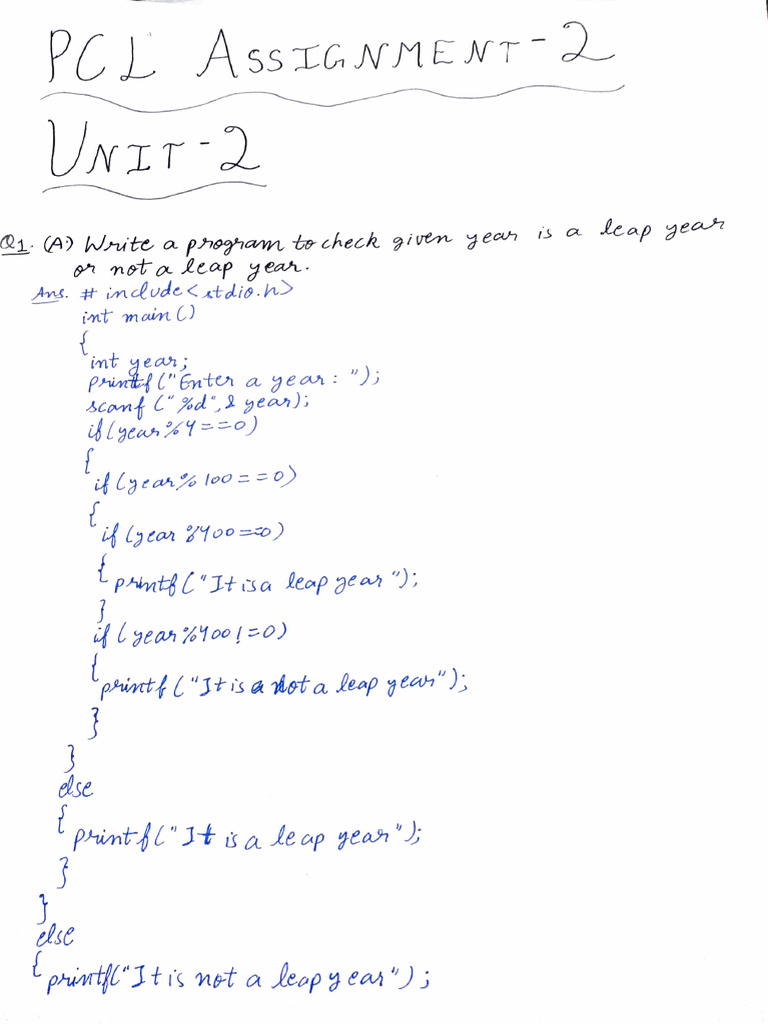 PCL ASSIGNMENT-2
UNIT-2
Q1. (A) Write a program to check given year is a leap year
or not a leap year.
Ans. # include<stdio.h>
int main()
{
int year;
printf("Enter a year: ");
scanf ("%d",& year);
if(year%4==0)
{
if(year%100==0)
{
if(year%400==0)
{
printf("It is a leap year");
}
if(year%400!=0)
{
printf("It is not a leap year");
}
}
else
{
printf("It is a leap year");
}
}
else
{
printf("It is not a leap year");